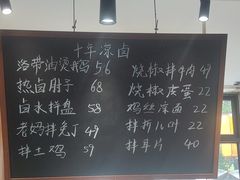 十年凉卤
洛带油烫鹅 56
热卤肘子 68
卤水拼盘 58
老妈拌兔丁 49
拌土鸡 59
烧椒拌牛肉 49
烧椒皮蛋 22
鸡丝凉面 22
拌折儿叶 22
拌耳片 40